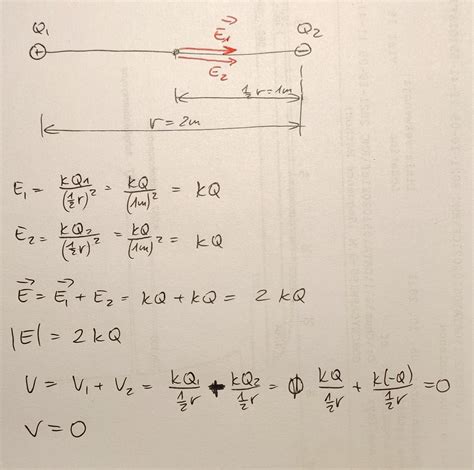 Q₁ E₁ Q₂
⊕ ⊖
E₂
½r=1m
r=2m
E₁ = kQ1/(½r)² = kQ/(1m)² = kQ
E₂ = kQ₂/(½r)² = kQ/(1m)² = kQ
E = E₁ + E₂ = kQ + kQ = 2kQ
|E| = 2kQ
V = V₁ + V₂ = kQ₁/½r + kQ₂/½r = kQ/½r + k(-Q)/½r = 0
V = 0